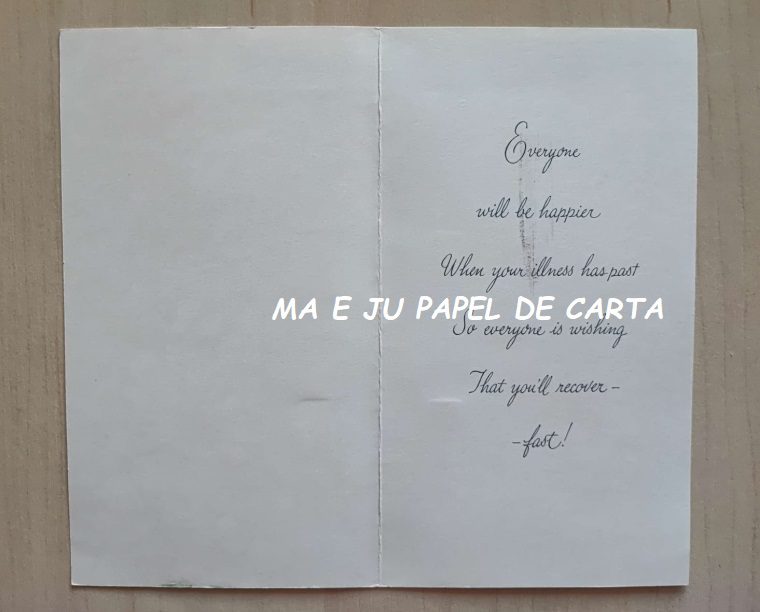 Everyone
will be happier
When your illness has past
MA E JU PAPEL DE CARTA
So everyone is wishing
That you'll recover –
– fast!